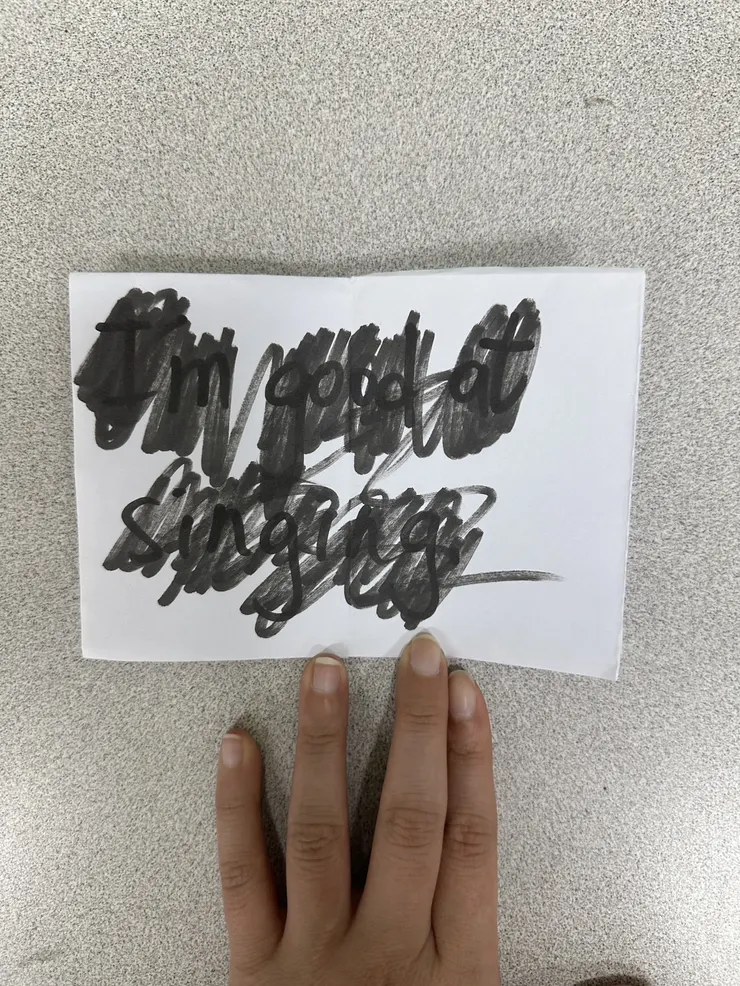 I'm good at
singing.